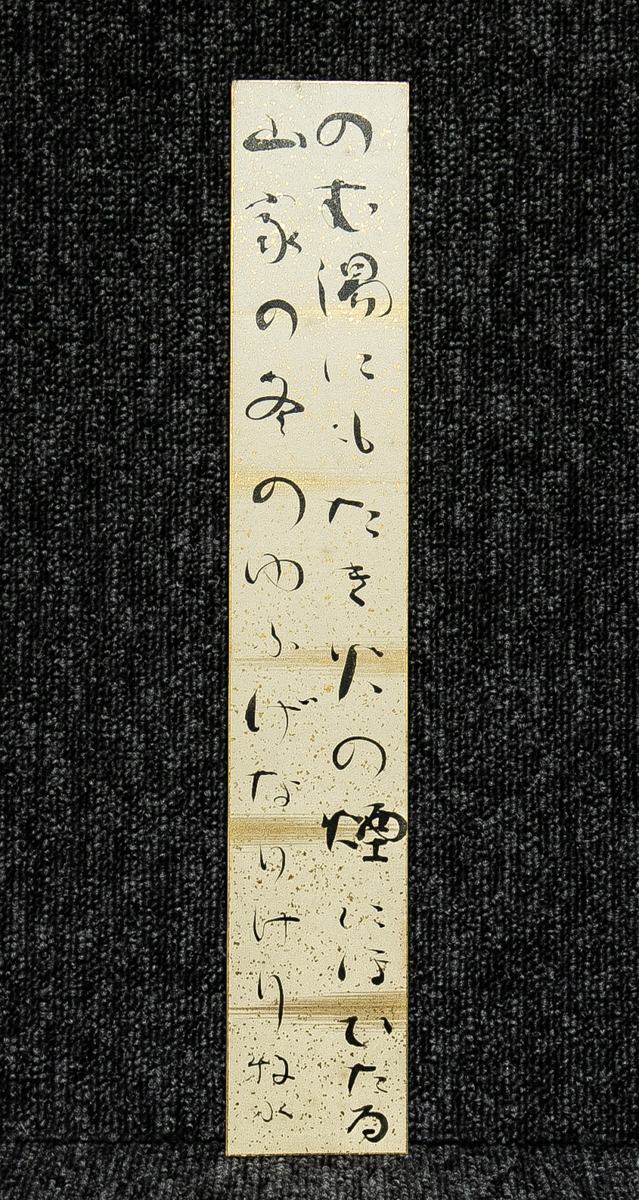 のむ湯にもたき火の煙にほひたる
山家の冬のゆふげなりけり 牧水